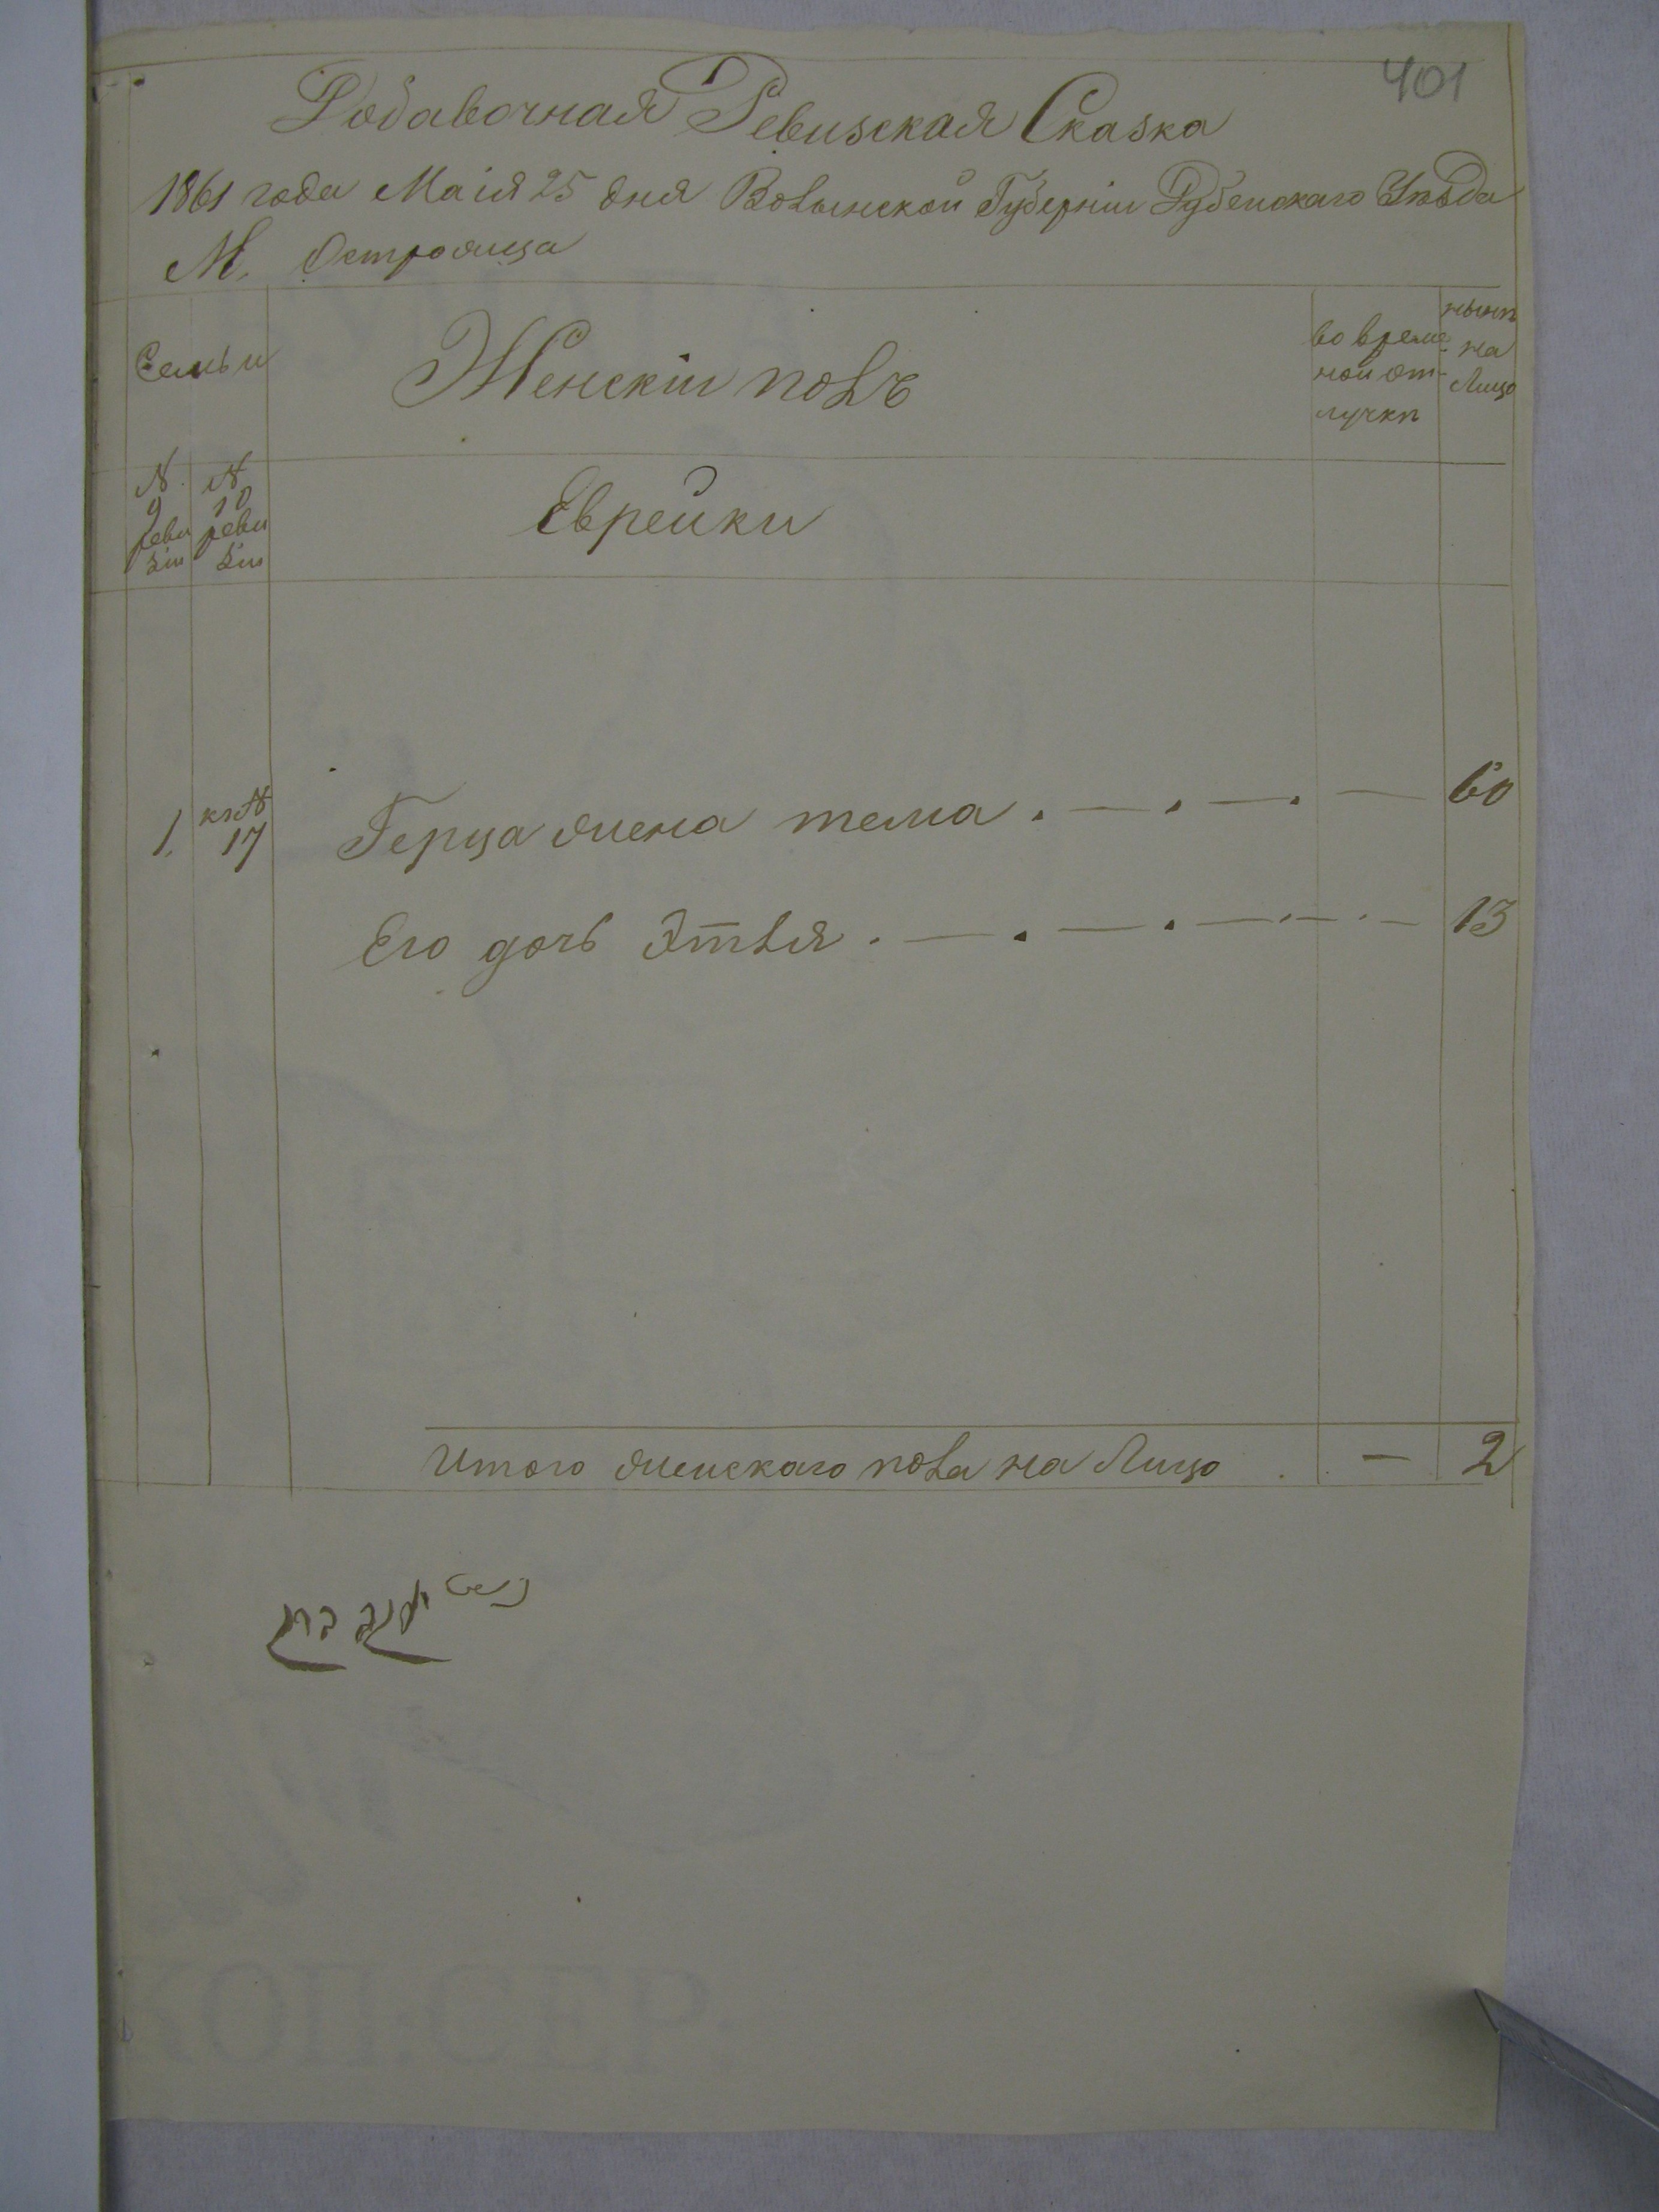 401
Добавочная Ревизская Сказка
1861 года Маія 25 дня Волынской Губерніи Дубенскаго Уѣзда
М. Остро
Семьи
Женскіи полъ
во време-
ной от-
лучкѣ
нынѣ
на
Лицо
№ 9 ревизіи
№ 10 ревизіи
Еврейки
1. къ № 17 Герца жена тема . — . — . — 60
Его дочь Этля . — . — . — . — . — 13
Итого женскаго пола на Лицо . — 2
КОП: СЕР: